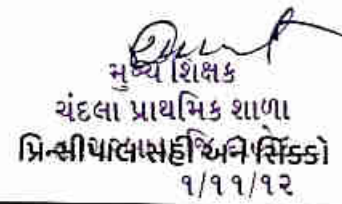 મુખ્ય શિક્ષક
ચંદલા પ્રાથમિક શાળા
પ્રિન્સીપાલ સહી અને સિક્કો
૧/૧૧/૧૨